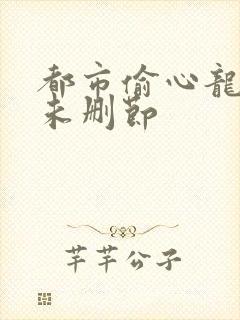 都市偷心龍
未删節
芊芊公子